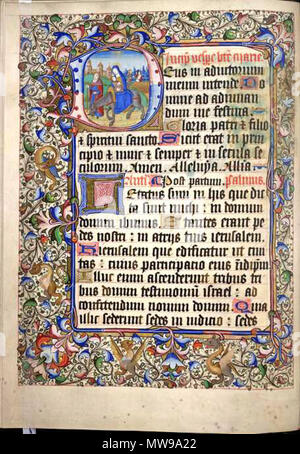 Deus in adiutorium
meum intende. Do
mine ad adiuuan
dum me festina
Gloria patri et filio
& spiritui sancto. Sicut erat in prin
cipio & nunc & semper & in secula se
culorum. Amen. Alleluya. Allia
Post partum. psalmus.
Letatus sum in hijs que dic
ta sunt michi: in domum
domini ibimus. Stantes erant pe
des nostri: in atrijs tuis ierusalem.
Iherusalem que edificatur ut ciui
tas: cuius participatio eius in idipm
Illuc enim ascenderunt tribus tri
bus domini testimonium israel: ad
confitendum nomini domini. Quia
illic sederunt sedes in iudicio: sedes
alamy
Image ID: MW9A22
www.alamy.com